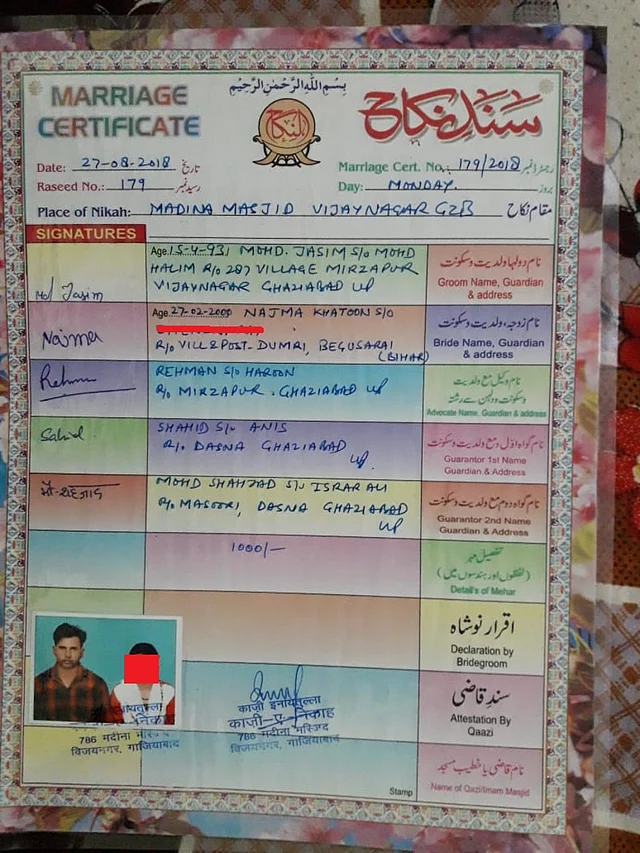 بِسْمِ اللّٰهِ الرَّحْمٰنِ الرَّحِيْمِ
MARRIAGE
CERTIFICATE
النکاح
سَنَدِ نِکاح
Date: 27-08-2018 تاریخ
Marriage Cert. No. 179/2018 رجسٹر نمبر
Raseed No.: 179 رسید نمبر
Day: MONDAY. بروز
Place of Nikah: MADINA MASJID VIJAYNAGAR GZB مقام نکاح
SIGNATURES
Md Jasim
Age 15-4-93, MOHD. JASIM S/o MOHD
HALIM R/o 287 VILLAGE MIRZAPUR
VIJAYNAGAR GHAZIABAD UP
نام دولہا ولدیت وسکونت
Groom Name, Guardian
& address
Najma
Age 27-02-2000 NAJMA KHATOON S/o
R/o VILL & POST-DUMRI, BEGUSARAI
(BIHAR)
نام زوجہ، ولدیت وسکونت
Bride Name, Guardian
& address
REHMAN S/o HAROON
R/o MIRZAPUR. GHAZIABAD UP
نام وکیل مع ولدیت
وسکونت ودلہن سے رشتہ
Advocate Name. Guardian & address
SHAHID S/o ANIS
R/o DASNA GHAZIABAD
UP.
نام گواہ اوّل مع ولدیت وسکونت
Guarantor 1st Name
Guardian & Address
मौ-शहजाद
MOHD SHAHZAD S/o ISRAR ALI
R/o MASOORI, DASNA GHAZIABAD
UP
نام گواہ دوم مع ولدیت وسکونت
Guarantor 2nd Name
Guardian & Address
1000/-
تفصیل مہر
(لفظوں اور ہندسوں میں)
Detail's of Mehar
اقرار نوشاہ
Declaration by
Bridegroom
سندِ قاضی
Attestation By
Qaazi
काज़ी इनायतुल्ला
काज़ी-ए-निकाह
786 मदीना मस्जिद
विजयनगर, गाजियाबाद
इनायतुल्ला
निकाह
786 मदीना मस्जिद
विजयनगर, गाजियाबाद
Stamp
نام قاضی یا خطیب مسجد
Name of Qazi/Imam Masjid